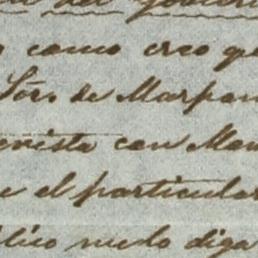 del gobierno
como creo q
Sors de Marpan
evista con Man
e el particular
lico melo diga